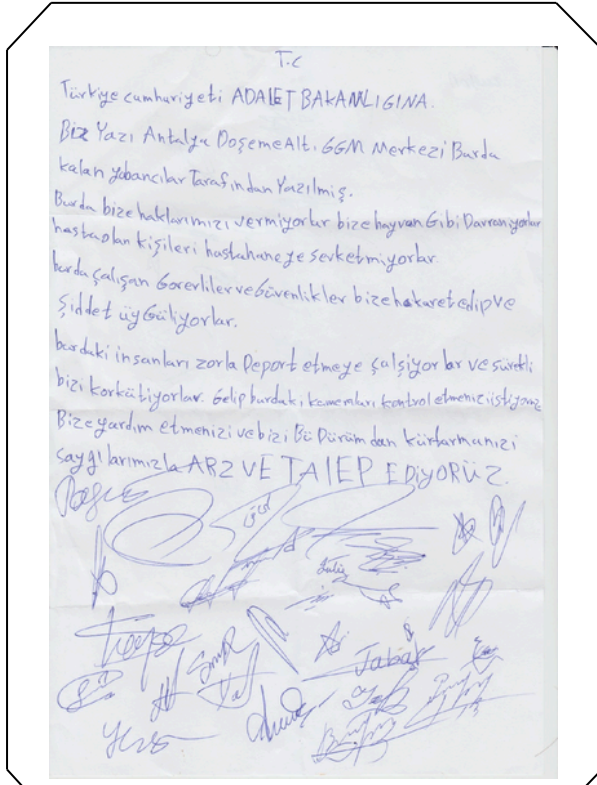 T.C
Türkiye cumhuriyeti ADALET BAKANLIGINA.
Biz Yazı Antalya DoşemeAlt. GGM Merkezi Burda
kalan yabancılar Tarafından Yazılmış.
Burda bize haklarımızı vermiyorlar bize hayvan Gibi Davranıyorlar
hasta olan kişileri hastahaneye sevketmiyorlar
burda çalışan Gorevliler ve Güvenlikler bize hakaret edip ve
Şiddet üyGüliyorlar.
burdaki insanları zorla Deport etmeye çalşiyorlar ve sürekli
bizi korkütiyorlar. Gelip burdaki kameraları kontrol etmenizi istiyoruz
Bize yardım etmenizi ve bizi Bü Dürümdan kürtarmanızi
saygılarımızla ARZ VE TALEP EDİYORÜZ.
Jabar